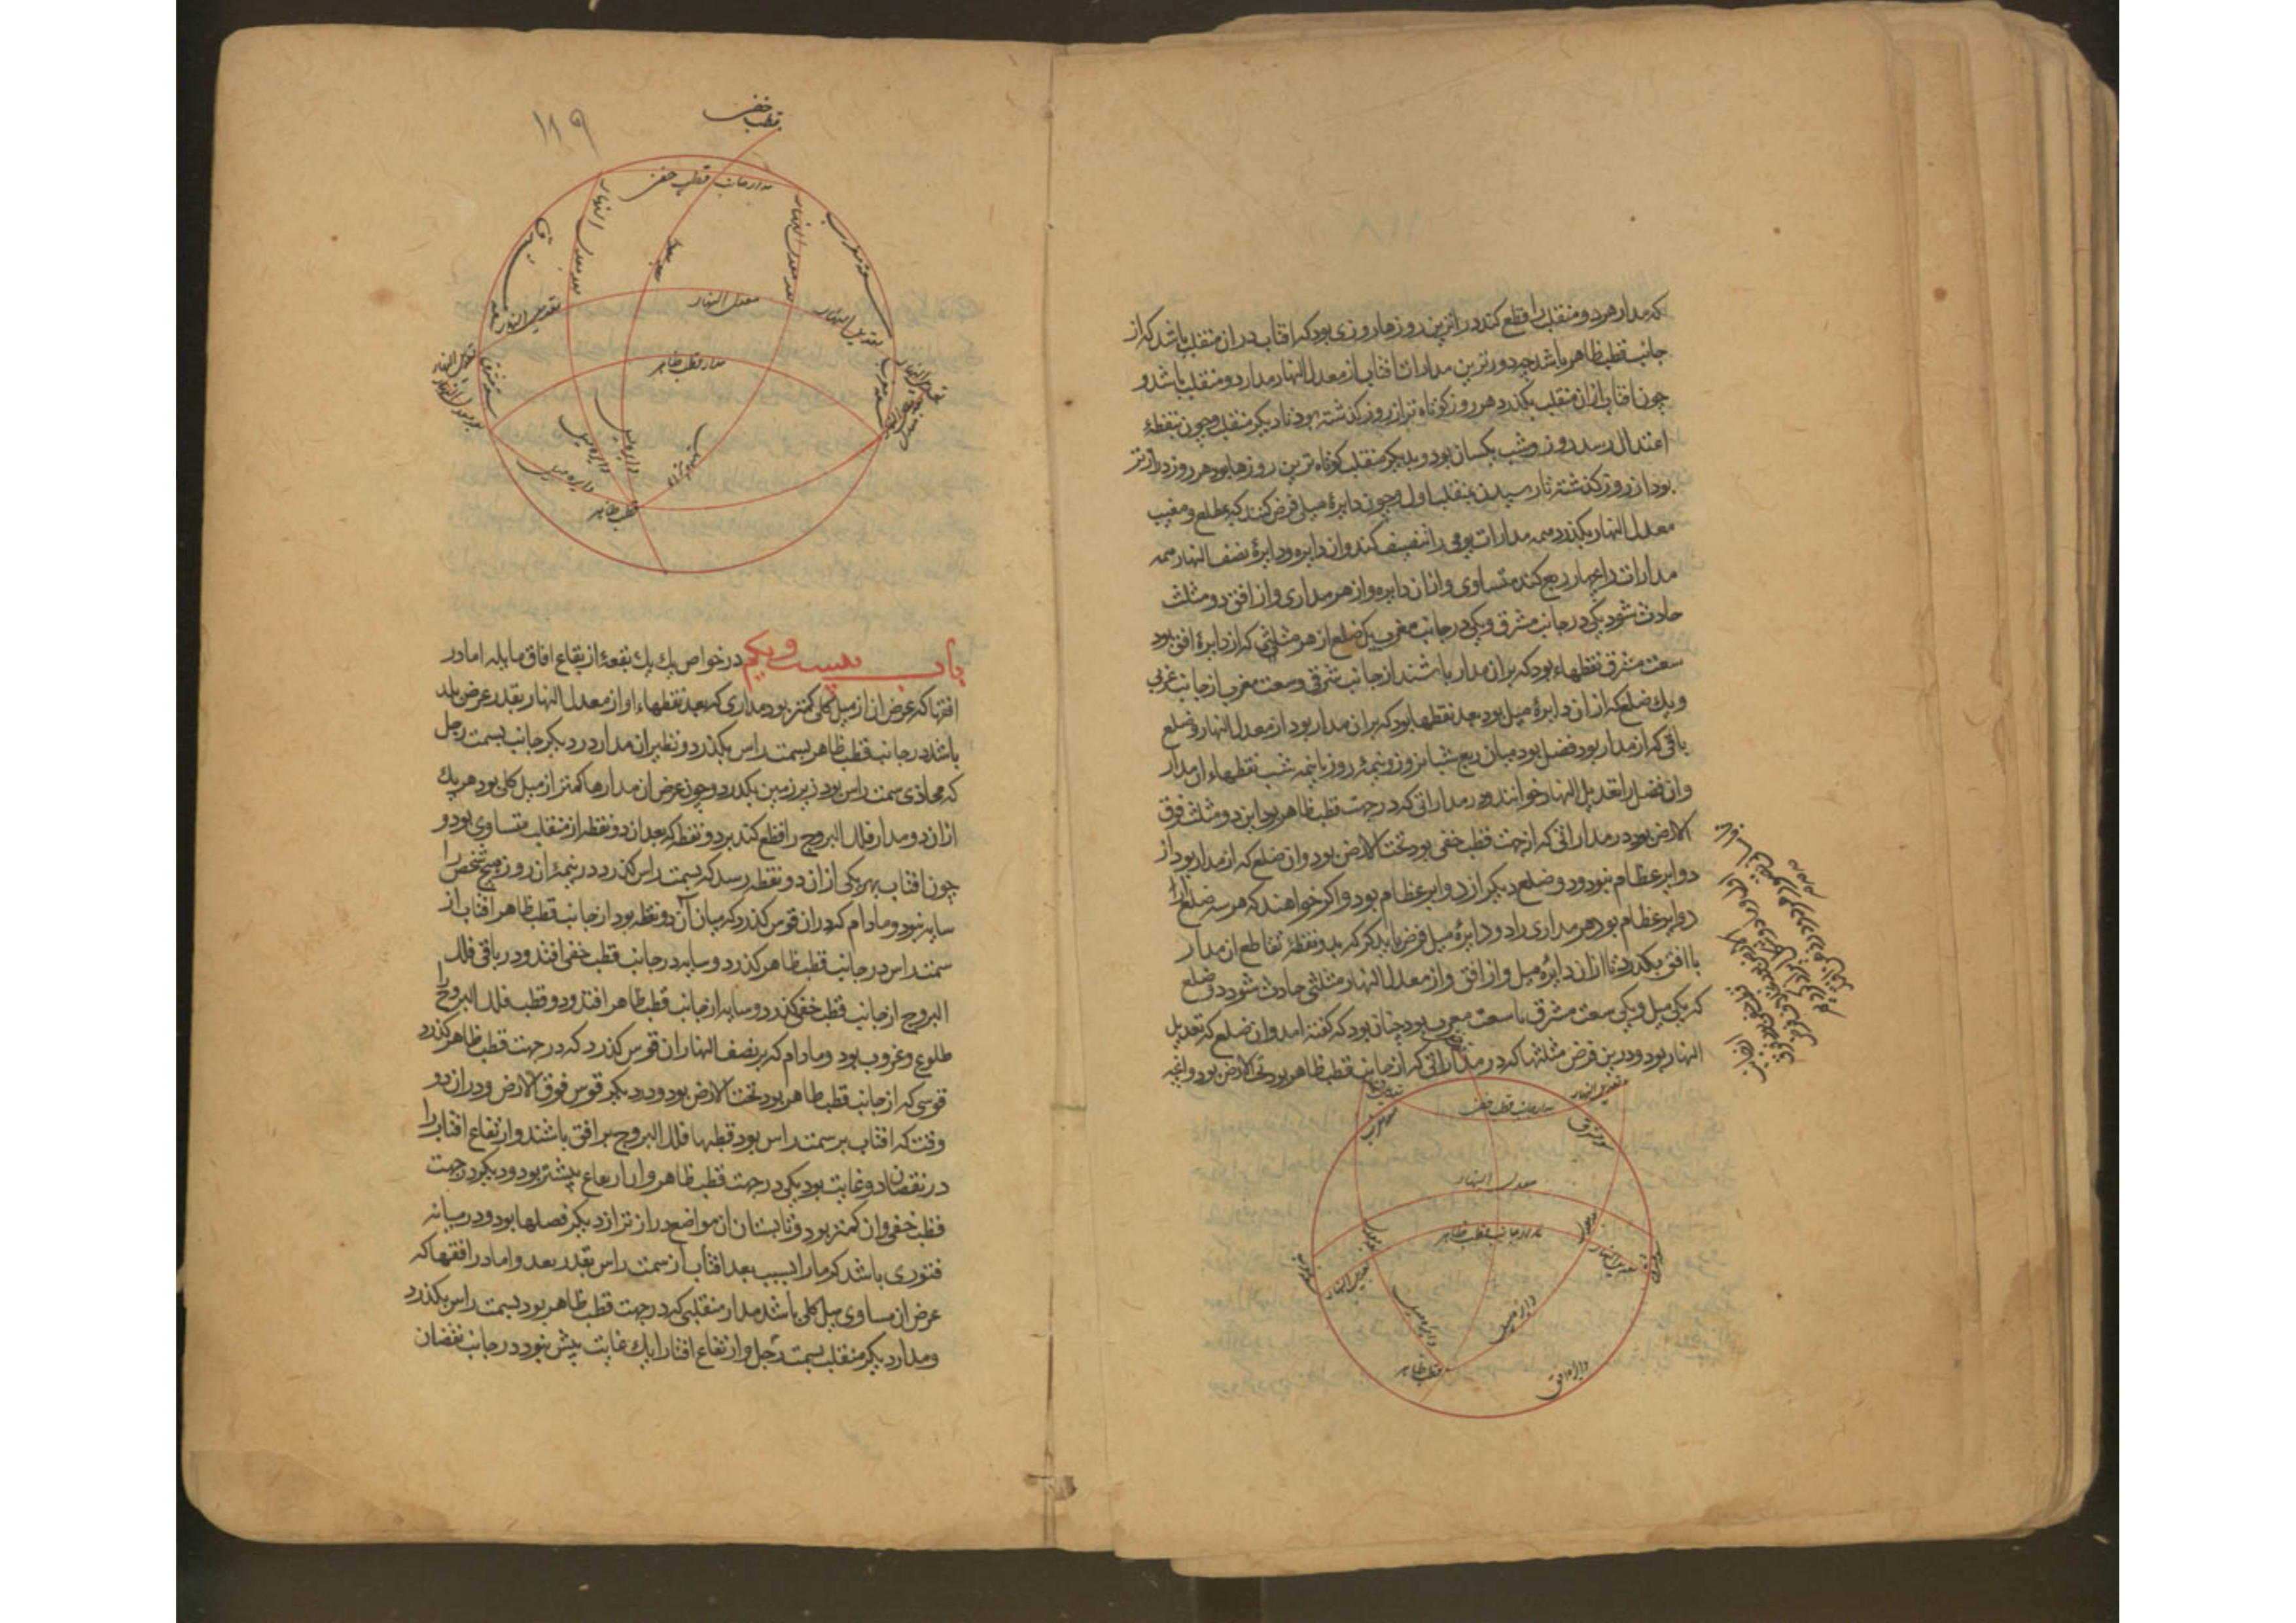 که مدار هر دو منقلب را قطع کند درازترین روزها روزی بود که افتاب در ان منقلب باشد که از
جانب قطب ظاهر باشد چه دورترین مدارات افتاب از معدل النهار مدار دو منقلب باشد و
چون افتاب از ان منقلب بکذرد هر روز کوتاه تر از روز کذشته بود تا دیکر منقلب و چون بنقطهٔ
اعتدال رسد روز و شب یکسان بود و بدیکر منقلب کوتاه ترین روزها بود و هر روز درازتر
بود از روز کذشته تا رسیدن بمنقلب اول و چون دایرهٔ میلی فرض کنند که بمطلع و مغیب
معدل النهار بکذرد همه مدارات یومی را تنصیف کند و ان دایره و دایرهٔ نصف النهار همه
مدارات را بچهار ربع کند متساوی و از ان دایره و از هر مداری و از افق دو مثلث
حادث شود یکی در جانب مشرق و یکی در جانب مغرب یک ضلع از هر مثلثی که از دایرهٔ افق بود
سعت مشرق نقطهاء بود که بر ان مدار باشند از جانب شرقی و سعت مغرب از جانب غربی
و یک ضلع که از ان دایرهٔ میل بود بعد نقطها بود که بر ان مدار بود از معدل النهار و ضلع
باقی که از مدار بود فضل بود میان ربع شبانروز و نیمهٔ روز یا نیمه شب نقطهاء ان مدار
و ان فضل را تعدیل النهار خوانند و در مداراتی که در جهت قطب ظاهر بود این دو مثلث فوق
الارض بود در مداراتی که از جهت قطب خفی بود تحت الارض بود و ان ضلع که از مدار بود از
دوایر عظام نبود و دو ضلع دیکر از دوایر عظام بود و اکر خواهند که هر سه ضلع از
دوایر عظام بود هر مداری را دو دایرهٔ میل فرض باید کرد که بدو نقطهٔ تقاطع ان مدار
با افق بکذرد تا از ان دایرهٔ میل و از افق و از معدل النهار مثلثی حادث شود دو ضلع
که یکی میل و یکی سعت مشرق یا سعت مغرب بود چنان بود که کفته امد و ان ضلع که تعدیل
النهار بود و درین فرض مثلثها که در مداراتی که از جانب قطب ظاهر بود تحت الارض بود و انچه
تعدیل النهار
مدار جانب قطب خفی
سعت مشرق
معدل النهار
مدار جانب قطب ظاهر
تعدیل النهار
تعدیل النهار
دایره میل
دایره میل
قطب ظاهر
دایره افق
۱۱۹
قطب خفی
مدار جانب قطب خفی
بعد معدل النهار
بعد معدل النهار
سعة مغرب
معدل النهار
تعدیل النهار
تعدیل النهار
مدار قطب ظاهر
سعة مشرق
سعة مغرب
دایره میل
دایره میل
دایره میل
قطب ظاهر
باب بیست و یکم در خواص یک یک بقعهٔ از بقاع افاق مایله اما در
افقها که عرض ان از میل کلی کمتر بود مداری که بعد نقطهاء او از معدل النهار بقدر عرض بلد
باشد در جانب قطب ظاهر بسمت راس بکذرد و نظیر ان مدار در دیکر جانب بسمت رجل
که محاذی سمت راس بود زیر زمین بکذرد و چون عرض ان مدارها کمتر از میل کلی بود هر یک
از ان دو مدار فلک البروج را قطع کند بر دو نقطه که بعد ان دو نقطه از منقلب متساوی بود و
چون افتاب بهر یکی از ان دو نقطه رسد که بسمت راس کذرد در نیمهٔ ان روز هیچ شخص را
سایه نبود و مادام که در ان قوس کذرد که میان آن دو نقطه بود از جانب قطب ظاهر افتاب از
سمت راس در جانب قطب ظاهر کذرد و سایه در جانب قطب خفی افتد و در باقی فلک
البروج از جانب قطب خفی کذرد و سایه از جانب قطب ظاهر افتد و دو قطب فلک البروج را
طلوع و غروب بود و مادام که بر نصف النهار ان قوس کذرد که در جهت قطب ظاهر کذرد
قوسی که از جانب قطب ظاهر بود تحت الارض بود و در دیکر قوس فوق الارض و در ان دو
وقت که افتاب بر سمت راس بود قطبها فلک البروج بر افق باشند و ارتفاع افتاب را
در نقصان دو غایت بود یکی در جهت قطب ظاهر و ان ارتفاع بیشتر بود و دیکر در جهت
قطب خفی و ان کمتر بود و تابستان ان مواضع درازتر از دیکر فصلها بود و در میانه
فتوری باشد کرما را بسبب بعد افتاب از سمت راس بقدر بعد و اما در افقها که
عرض ان مساوی میل کلی باشد مدار منقلبی که در جهت قطب ظاهر بود بسمت راس بکذرد
و مدار دیکر منقلب بسمت رجل و ارتفاع افتاب را یک غایت بیش نبود در جانب نقصان